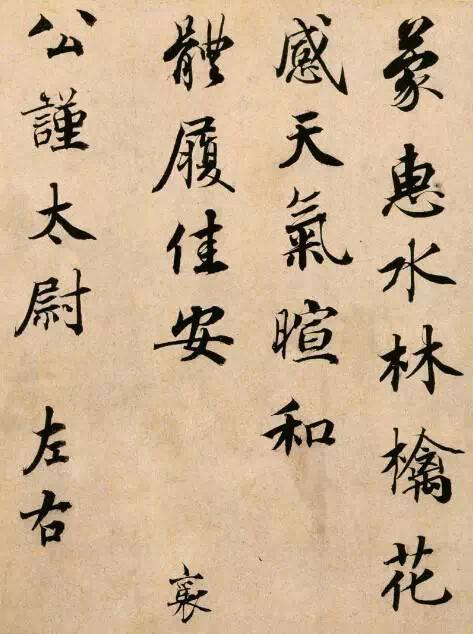 蒙惠水林檎花
感天氣暄和
體履佳安　襄
公謹太尉　左右